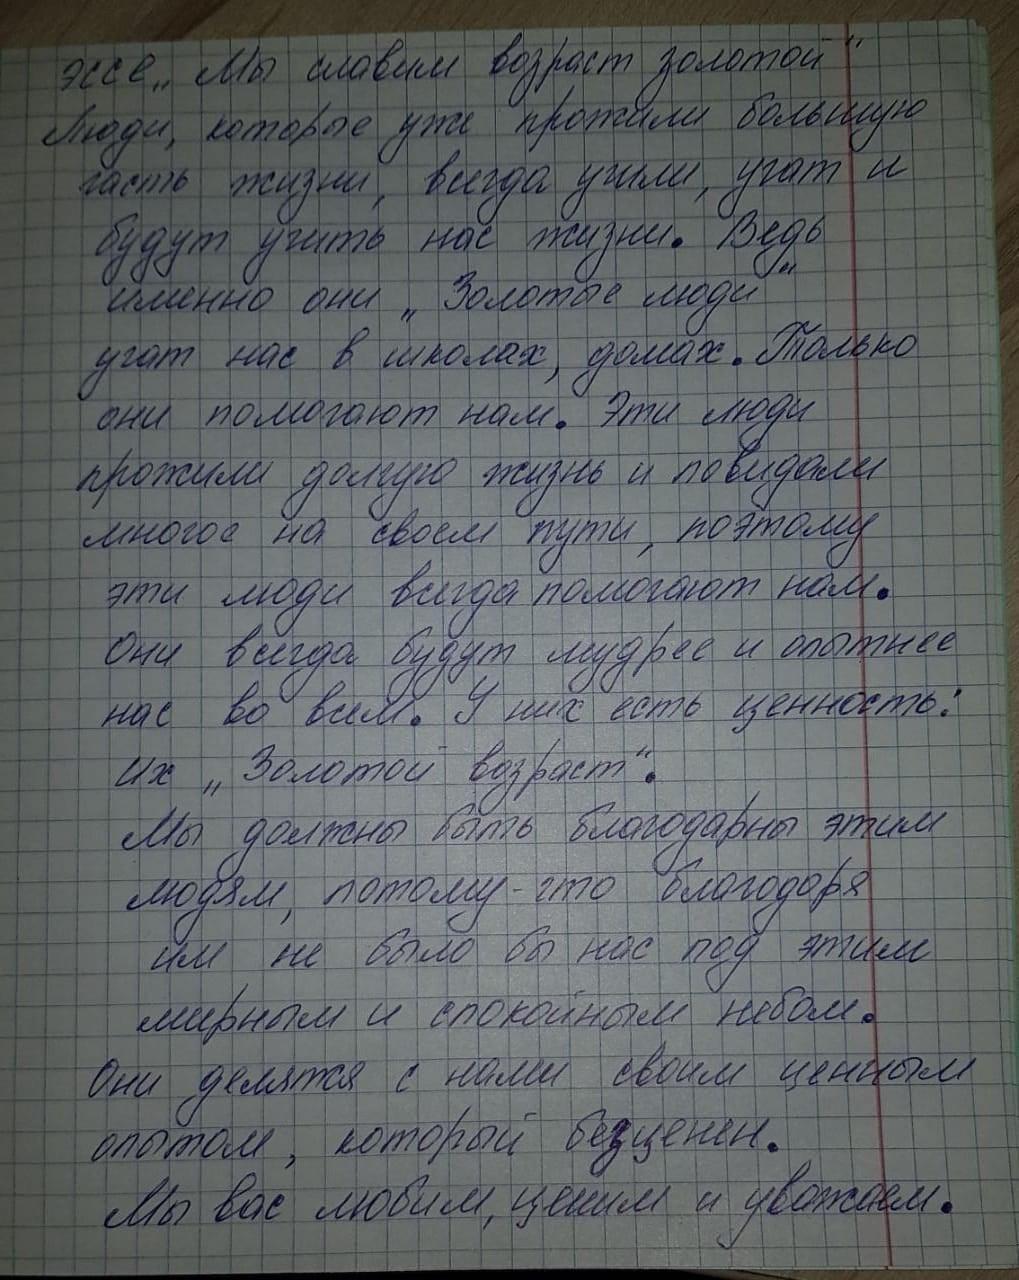 эссе „ Мы славим возраст золотой "
Люди, которые уже прожили большую
часть жизни, всегда учили, учат и
будут учить нас жизни. Ведь
именно они „ Золотые люди "
учат нас в школах, домах. Только
они помогают нам. Эти люди
прожили долгую жизнь и повидали
многое на своем пути, поэтому
эти люди всегда помогают нам.
Они всегда будут мудрее и опытнее
нас во всем. У них есть ценность:
их „ Золотой возраст ".
Мы должны быть благодарны этим
людям, потому-что благодоря
им не было бы нас под этим
мирным и спокойным небом.
Они делятся с нами своим ценным
опытом, который безценен.
Мы вас любим, ценим и уважаем.